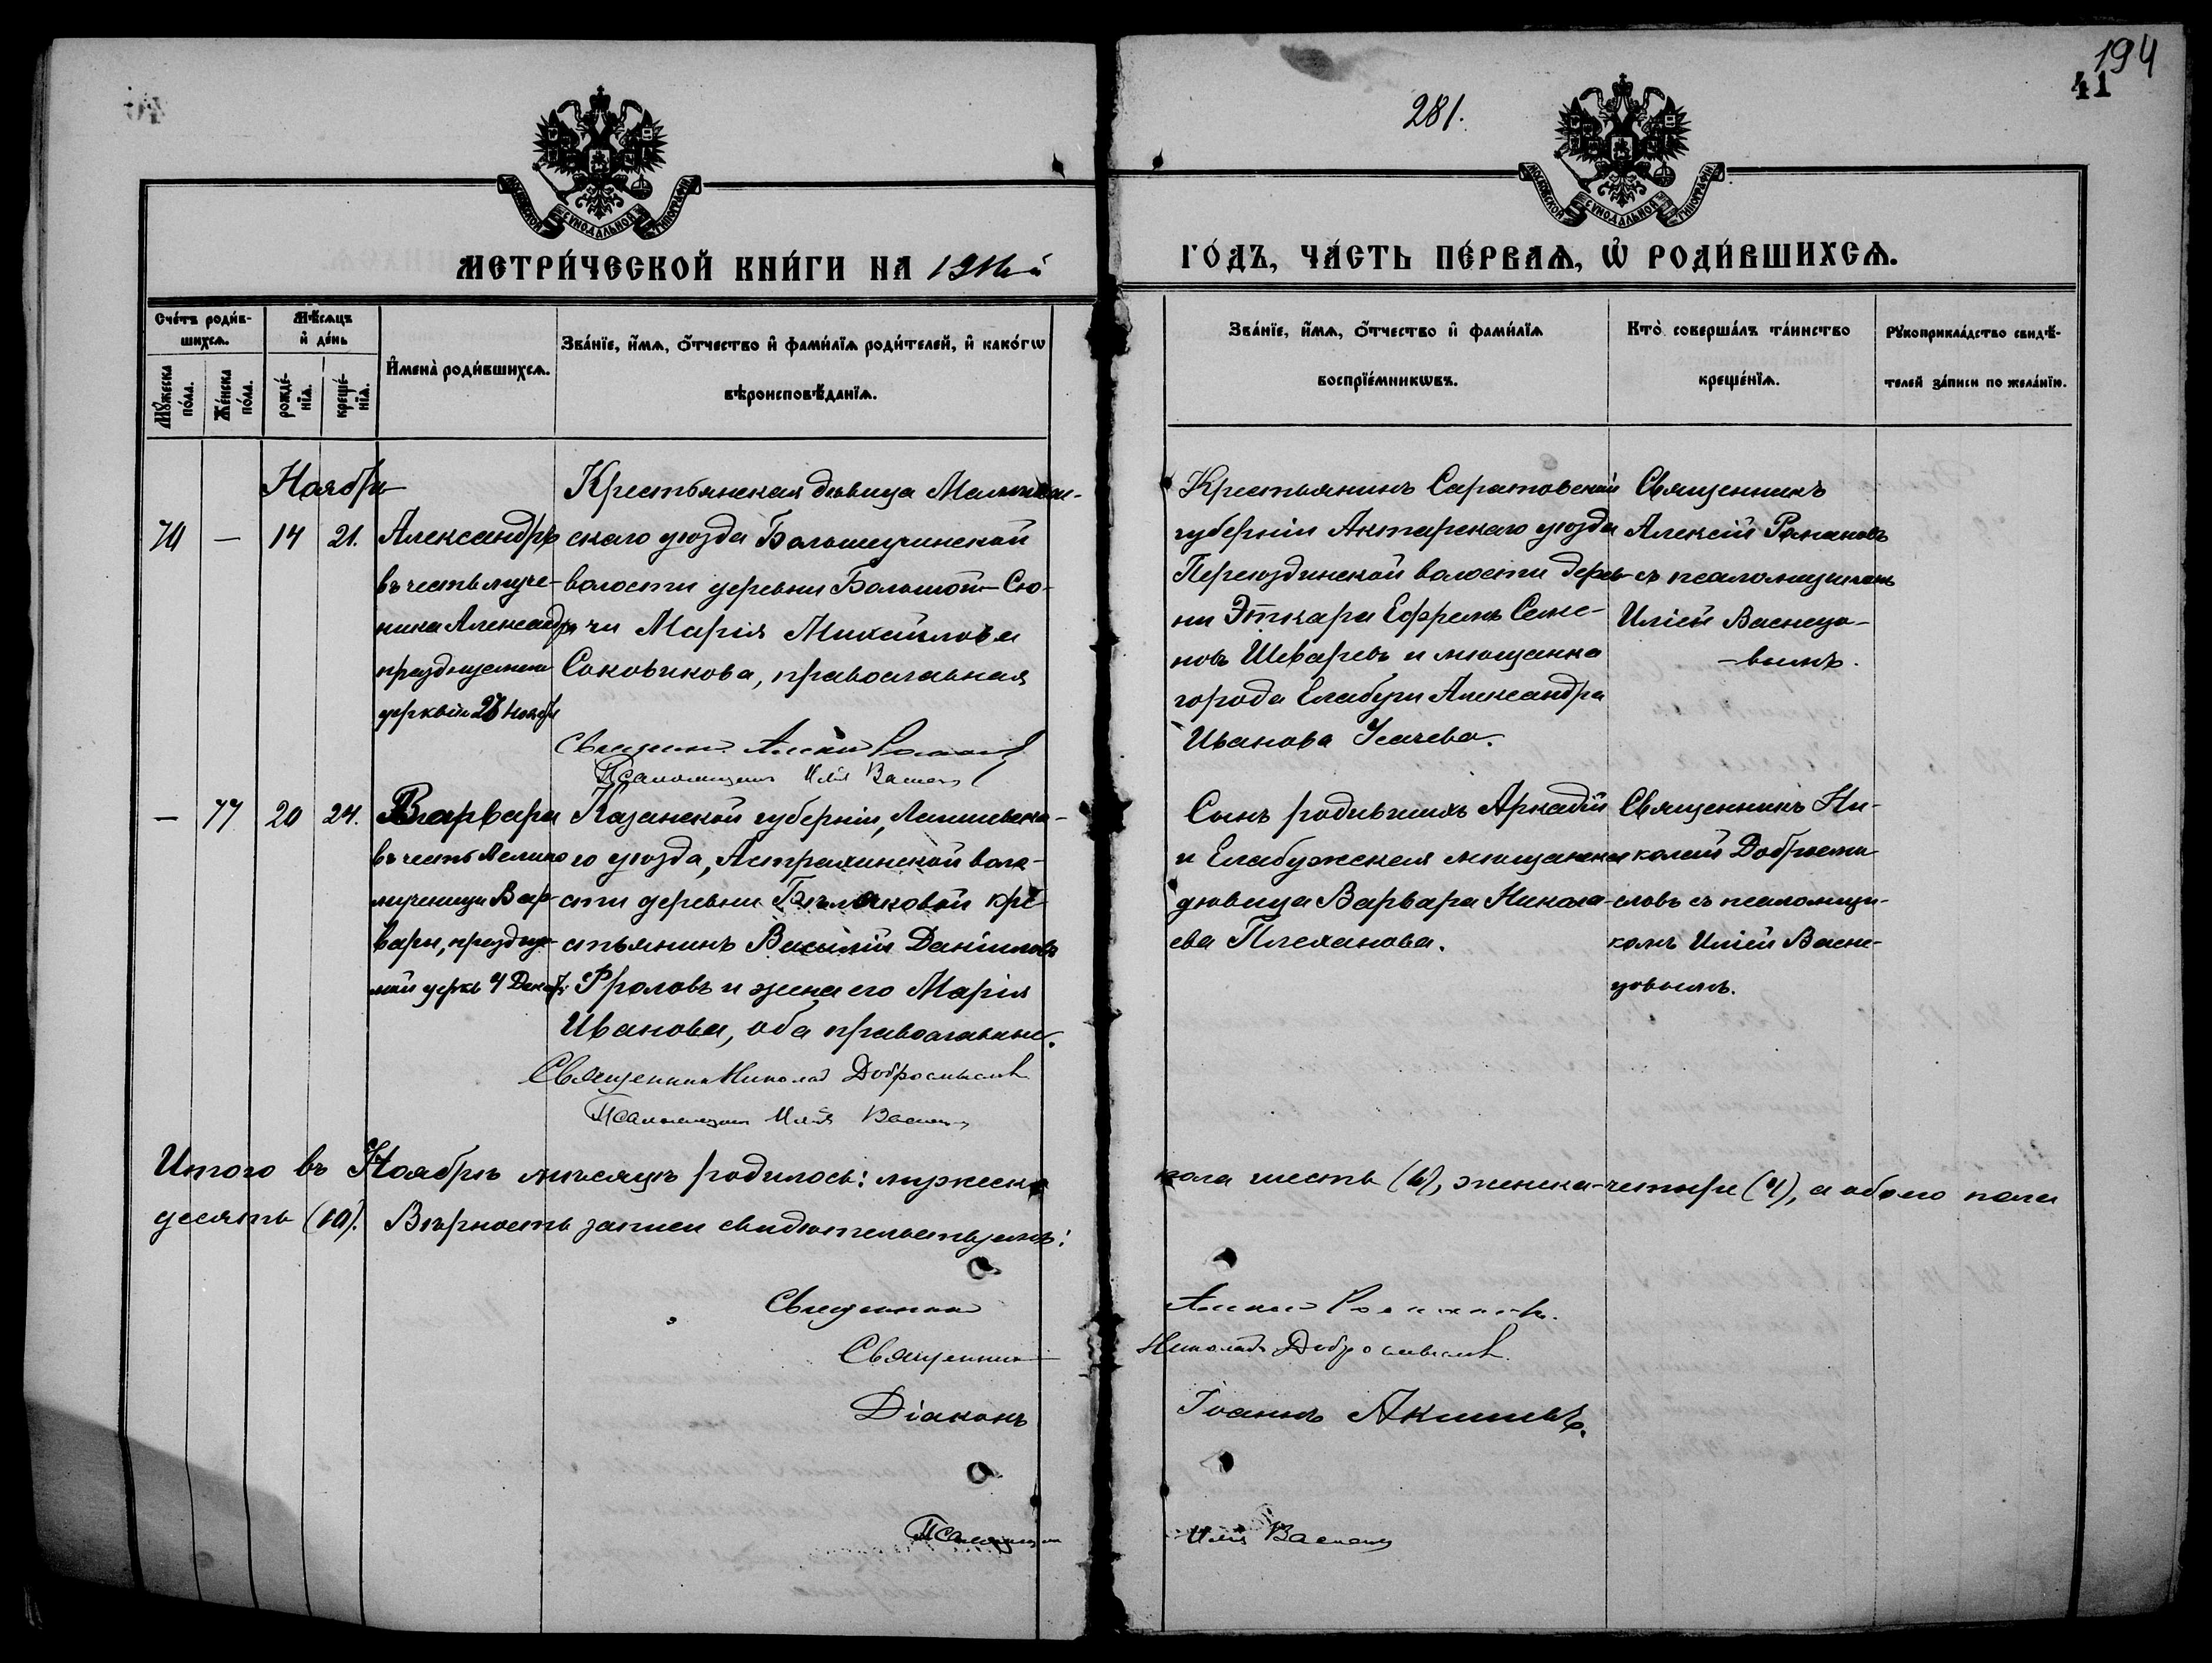 194
41
281.
МОСКОВСКОЙ СѴНОДАЛЬНОЙ ТИПОГРАФІИ
МОСКОВСКОЙ СѴНОДАЛЬНОЙ ТИПОГРАФІИ
МЕТРИ́ЧЕСКОЙ КНИ́ГИ НА
ГО́ДЪ, ЧА́СТЬ ПЕ́РВАѦ, Ѡ҆ РОДИ́ВШИХСѦ.
Сче́тъ роди́в-
шихсѧ.
Мѣ́сѧцъ
и҆ де́нь
Мꙋ́жеска
по́ла.
Же́нска
по́ла.
рожде́-
нїѧ.
креще́-
нїѧ.
И҆мена̀ роди́вшихсѧ.
Зва́нїе, и҆́мѧ, ѻ҆́тчество и҆ фами́лїѧ роди́телей, и҆ како́гѡ
вѣроисповѣ́данїѧ.
Зва́нїе, и҆́мѧ, ѻ҆́тчество и҆ фами́лїѧ
воспрїе́мникѡвъ.
Кто̀ соверша́лъ та́инство
креще́нїѧ.
Рꙋкоприкла́дство свидѣ́-
телей за́писи по жела́нїю.
Ноября
70 — 14 21.
Александръ
въ честь муче-
ника Александра
празднуемаго
Крестьянская дѣвица
скаго уѣзда
волости деревни Большой Сю-
чи Марія Михайлова
Соковикова, православная
Священникъ Алексій Романовъ
Псаломщикъ Илія Васнецовъ
Крестьянинъ Саратовской
губерніи Аткарскаго уѣзда
волости дерев-
ни Ефремъ Семе-
новъ Шеваревъ и мѣщанка
города Елабуги Александра
Иванова Усачева.
Священникъ
Алексій Романовъ
съ псаломщикомъ
Иліей Васнецо-
вымъ.
— 77 20 24.
Варвара
въ честь Велико
мученицы Вар-
вары, празднуе-
мой церк. 4 Декаб.
Казанской губерніи, Лаишевска-
го уѣзда, Астраханской воло-
сти деревни кре-
стьянинъ Василій Даніиловъ
Фроловъ и жена его Марія
Иванова, оба православные.
Священникъ Николай Добросмысловъ
Псаломщикъ Илія Васнецовъ
Сынъ родившихъ Аркадій
и Елабужская мѣщанка
дѣвица Варвара Никола-
ева Плеханова.
Священникъ Ни-
колай Добросмы-
словъ съ псаломщи-
комъ Иліей Васне-
цовымъ.
Итого въ Ноябрѣ мѣсяцѣ родилось: мужеска
пола шесть (6), женска-четыре (4), а обоего пола
десять (10). Вѣрность записи свидѣтельствуемъ:
Священникъ Алексій Романовъ.
Священникъ Николай Добросмысловъ.
Діаконъ Іоаннъ Акишевъ.
Псаломщикъ Илія Васнецовъ